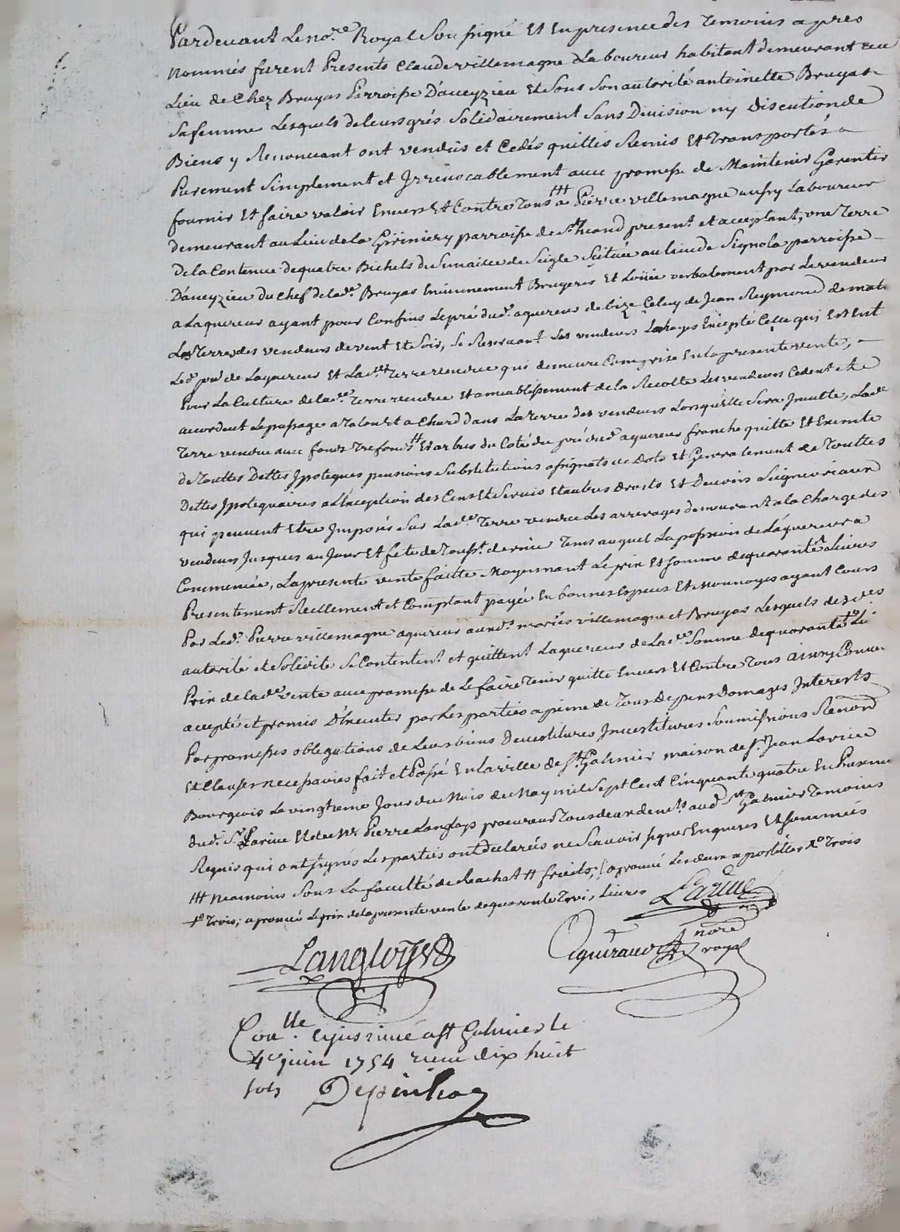 Pardevant Le no.re Royal Sousigné Et Enpresence des Temoins apres
nommés furent Presents Claude villemagne Laboureur habitant demeurant au
Lieu de Chez Bruyas Parroisse Daveyzieu Et Sous Son autorité antoinette Bruyas
Safemme Lesquels deleurs grés Solidairement Sans Division ny Discution de
Biens y Renoncant ont vendûs et Cedés quittés Remis Et Transportés
Purement Simplement et Irrevocablement avec promesse de Maintenir Garentir
fournir Et faire valoir Envers Et Contre Tous ttt a Pierre villemagne aussy Laboureur
demeurant au Lieu de la parroisse de present et acceptant, une Terre
De la Contenue dequatre Bichets du Semaille de Seigle Scituée au lieu de Signola parroisse
Daveyzieu du Chef delad.e Bruyas Bruyeres Et verbalement par Le vendeur
a Laquereur ayant pour Confins Lepré dud. aquereur de bize Celuy de Jean Reymond de matin
Les Terres des vendeurs de vent Et Soir, Se Reservant Les vendeurs Celle qui Est Ent
Led. pré de Laquereur Et Lad.e Terre vendue qui demeure Comprise En la presente vente,
Pour La Culture de lad.e Terre vendue Et de la Recolte Les vendeurs Cedent et
accordent Le passage a Talon Et a Chard dans La Terre des vendeurs Lorsquelle Sera Inculte, Lad.e
Terre vendue avec fonds Trefonds Et arbres du Coté du pré dud. aquereur franche quitte Et Exempte
de Touttes Dettes Ipoteques pensions Substitutions assignats de Dots Et Generalement de Touttes
Dettes Ipotequaires a Lexception des Cens Et Servis Et autres Droits Et Devoirs Seigneuriaux
qui peuvent Etre Imposés Sur Lad.e Terre vendue Les arrerages demeurant a la Charge des
vendeurs Jusques au Jour Et fete de Toussts derniere Tems auquel La possession de Laquereur a
Commencée, La presente vente faitte Moyennant Le prix Et Somme dequarante Livres
Presentement Reellement et Comptant payée En bonnes Especes Et Monnoyes ayant Cours
Par Led. Pierre villemagne aquereur auxd. mariés villemagne et Bruyas Lesquels de
autorité et Solidité Se Contentent et quittent Laquereur de Lad.e Somme dequarante Li
Prix de Lad.e vente avec promesse de Le faire Tenir quitte Envers Et Contre Tous Ainsy Convenu
accepté et promis Dexecuter par Les parties a peine de Tous Depens Domages Interests
Par promesses obligations de Leurs biens Devestitures Investitures Soumissions Renond
Et Clauses necessaires fait et Passé En la ville de St. Galmier maison de Sr. Jean Larive
Bourgeois Le vingtieme Jour du Mois de May mil Sept Cent Cinquante quatre En Presence
dud. Sr. Larive Et de Mr. Pierre Langloys procureur Tous deux demeurts aud. St. Galmier Temoins
Requis qui ont Signés Les parties ont declarés ne Scavoir Signer Enquis Et Sommées
ttt Neamoins Sous La faculté de Reachat approuvé Les deux apostilles
Trois, approuvé Le prix de la presente vente dequarante Trois Livres
Larive
Langloys
nore
royal
Con.lle à St Galmier le
4e juin 1754 reçu dix huit
sols